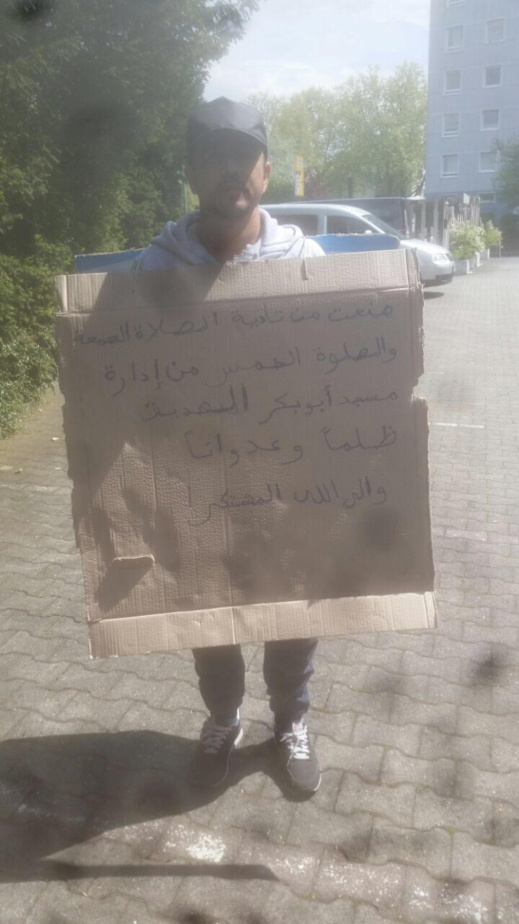 منعت من تادية الصلاة الجمعة
والصلوة الخمس من إدارة
مسجد أبو بكر الصديق
ظلماً وعدوانا
والى الله المشتكى!